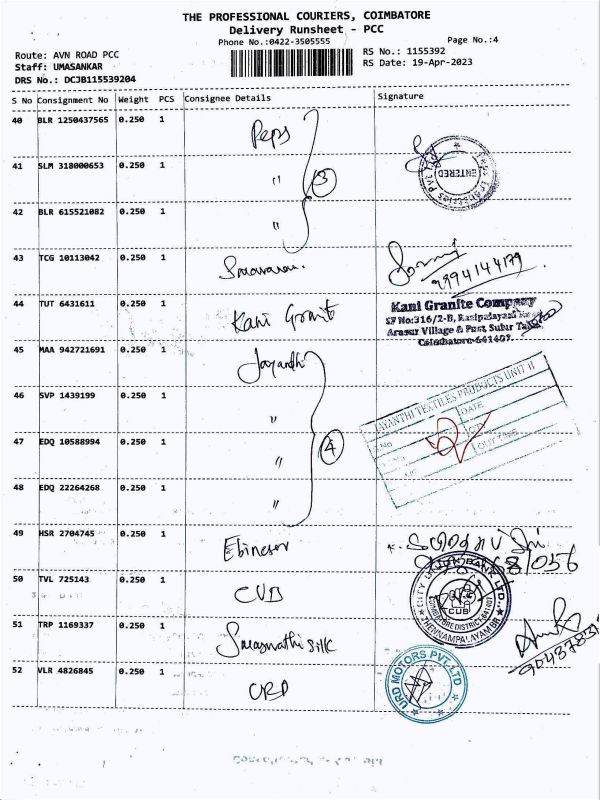 THE PROFESSIONAL COURIERS, COIMBATORE
Delivery Runsheet - PCC
Phone No.:0422-3505555
Page No.:4
Route: AVN ROAD PCC
RS No.: 1155392
Staff: UMASANKAR
RS Date: 19-Apr-2023
DRS No.: DCJB115539204
S No Consignment No Weight PCS Consignee Details Signature
40 BLR 1250437565 0.250 1 Peps
ENTERED
41 SLM 318000653 0.250 1 "
3
42 BLR 615521082 0.250 1 "
43 TCG 10113042 0.250 1
9994144179
44 TUT 6431611 0.250 1 Kani Granit
Kani Granite Company
SF No:316/2-B, Rasipalayam
Arasur Village & Post, Sulur Taluk
Coimbatore-641407.
45 MAA 942721691 0.250 1 Jayandhi
JAYANTHI TEXTILES PRODUCTS UNIT II
DATE
46 SVP 1439199 0.250 1 "
No
47 EDQ 10588994 0.250 1 "
4
48 EDQ 22264268 0.250 1 "
49 HSR 2704745 0.250 1 Ebineser
50 TVL 725143 0.250 1 CUB
CITY UNION BANK LTD.
COIMBATORE DISTRICT
CUB
ZHENNAMPALAYAM BR
51 TRP 1169337 0.250 1 Saraswathi silk
52 VLR 4826845 0.250 1 URD
URD MOTORS PVT LTD